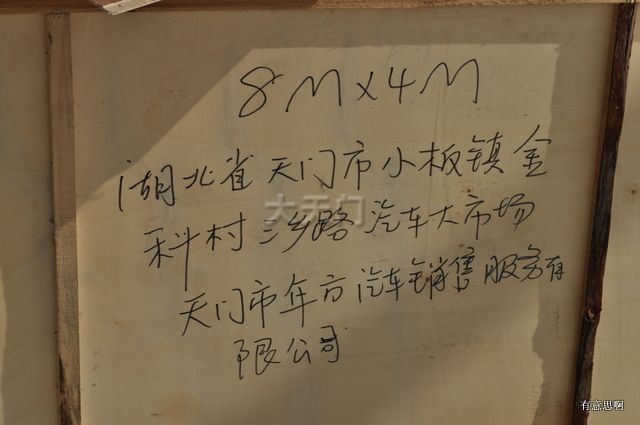 8M×4M
湖北省天门市小板镇金
科村三乡路汽车大市场
天门市年方汽车销售服务有
限公司
大天门
有意思啊